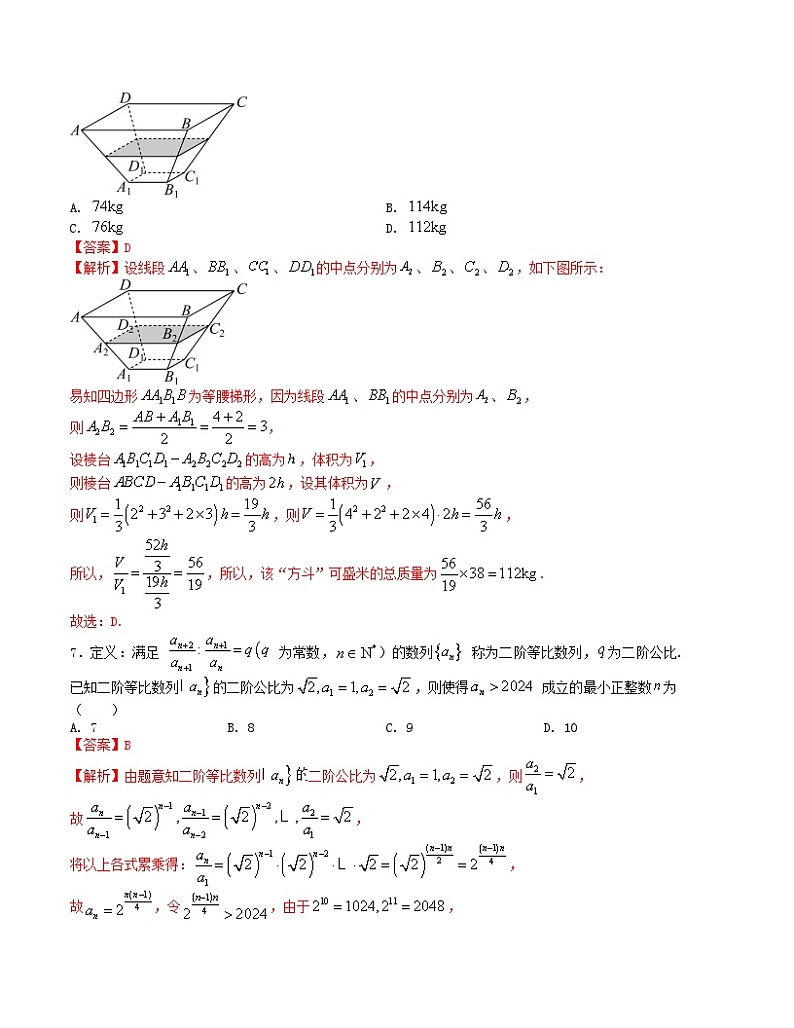 D
C
A
B
D₁
C₁
A₁
B₁
A. 74kg B. 114kg
C. 76kg D. 112kg
【答案】D
【解析】设线段 AA₁、BB₁、CC₁、DD₁的中点分别为A₂、B₂、C₂、D₂,如下图所示:
D
C
A
B
D₂
B₂
C₂
A₂
D₁
C₁
A₁
B₁
易知四边形 AA₁B₁B为等腰梯形,因为线段 AA₁、BB₁的中点分别为A₂、B₂,
则A₂B₂ = (AB + A₁B₁)/2 = (4+2)/2 = 3,
设棱台 A₁B₁C₁D₁ − A₂B₂C₂D₂ 的高为h,体积为V₁,
则棱台 ABCD − A₁B₁C₁D₁的高为2h,设其体积为V,
则V₁ = 1/3(2² + 3² + 2×3)h = 19/3 h,则V = 1/3(4² + 2² + 2×4)·2h = 56/3 h,
所以,V/V₁ = (52h/3)/(19h/3) = 56/19,所以,该“方斗”可盛米的总质量为 56/19 ×38 = 112kg.
故选:D.
7.定义:满足 aₙ₊₂/aₙ₊₁ : aₙ₊₁/aₙ = q(q 为常数,n∈N*)的数列{aₙ} 称为二阶等比数列,q为二阶公比.
已知二阶等比数列l aₙ}的二阶公比为√2,a₁=1,a₂=√2,则使得aₙ>2024 成立的最小正整数n为
( )
A. 7 B. 8 C. 9 D. 10
【答案】B
【解析】由题意知二阶等比数列l aₙ}的二阶公比为√2,a₁=1,a₂=√2,则a₂/a₁ = √2,
故 aₙ/aₙ₋₁ = (√2)^(n−1), aₙ₋₁/aₙ₋₂ = (√2)^(n−2), L , a₂/a₁ = √2,
将以上各式累乘得: aₙ/a₁ = (√2)^(n−1)·(√2)^(n−2)· L ·√2 = (√2)^((n−1)n/2) = 2^((n−1)n/4),
故aₙ = 2^(n(n−1)/4),令2^((n−1)n/4) > 2024,由于2¹⁰ = 1024, 2¹¹ = 2048,